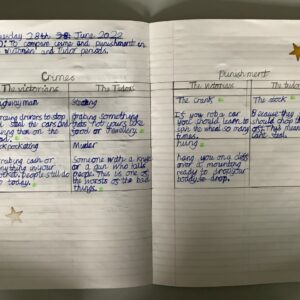 Tuesday 28th June 2022
LO: To compare crime and punishment in
the Victorian and Tudor periods.
Crimes
The victorians
The Tudors
highwayman
Stealing
making drivers to stop
steal the cars and
that on the
Grabing something
that's not yours like
food or Jewellery.
pickpocketing
Murder
Grabing cash or
anything in your
people still do
today.
Someone with a knife
or a gun who kills
people. This is one of
the worsts of the bad
things.
Punishment
The victorians
The tudors
The Crank
The stock
If you rob a car
you should learn to
spin the wheel so many
times.
Because they
should chop the
off. This means
cant steal.
hung
hang you on a cliff
over a mounting
ready to
body to drop.